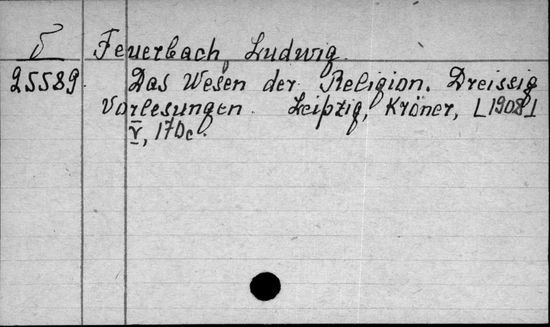 5 Feuerbach Ludwig.
25589. Das Wesen der Religion. Dreissig
Vorlesungen. Leipzig, Kröner, [1908]
V, 170c.